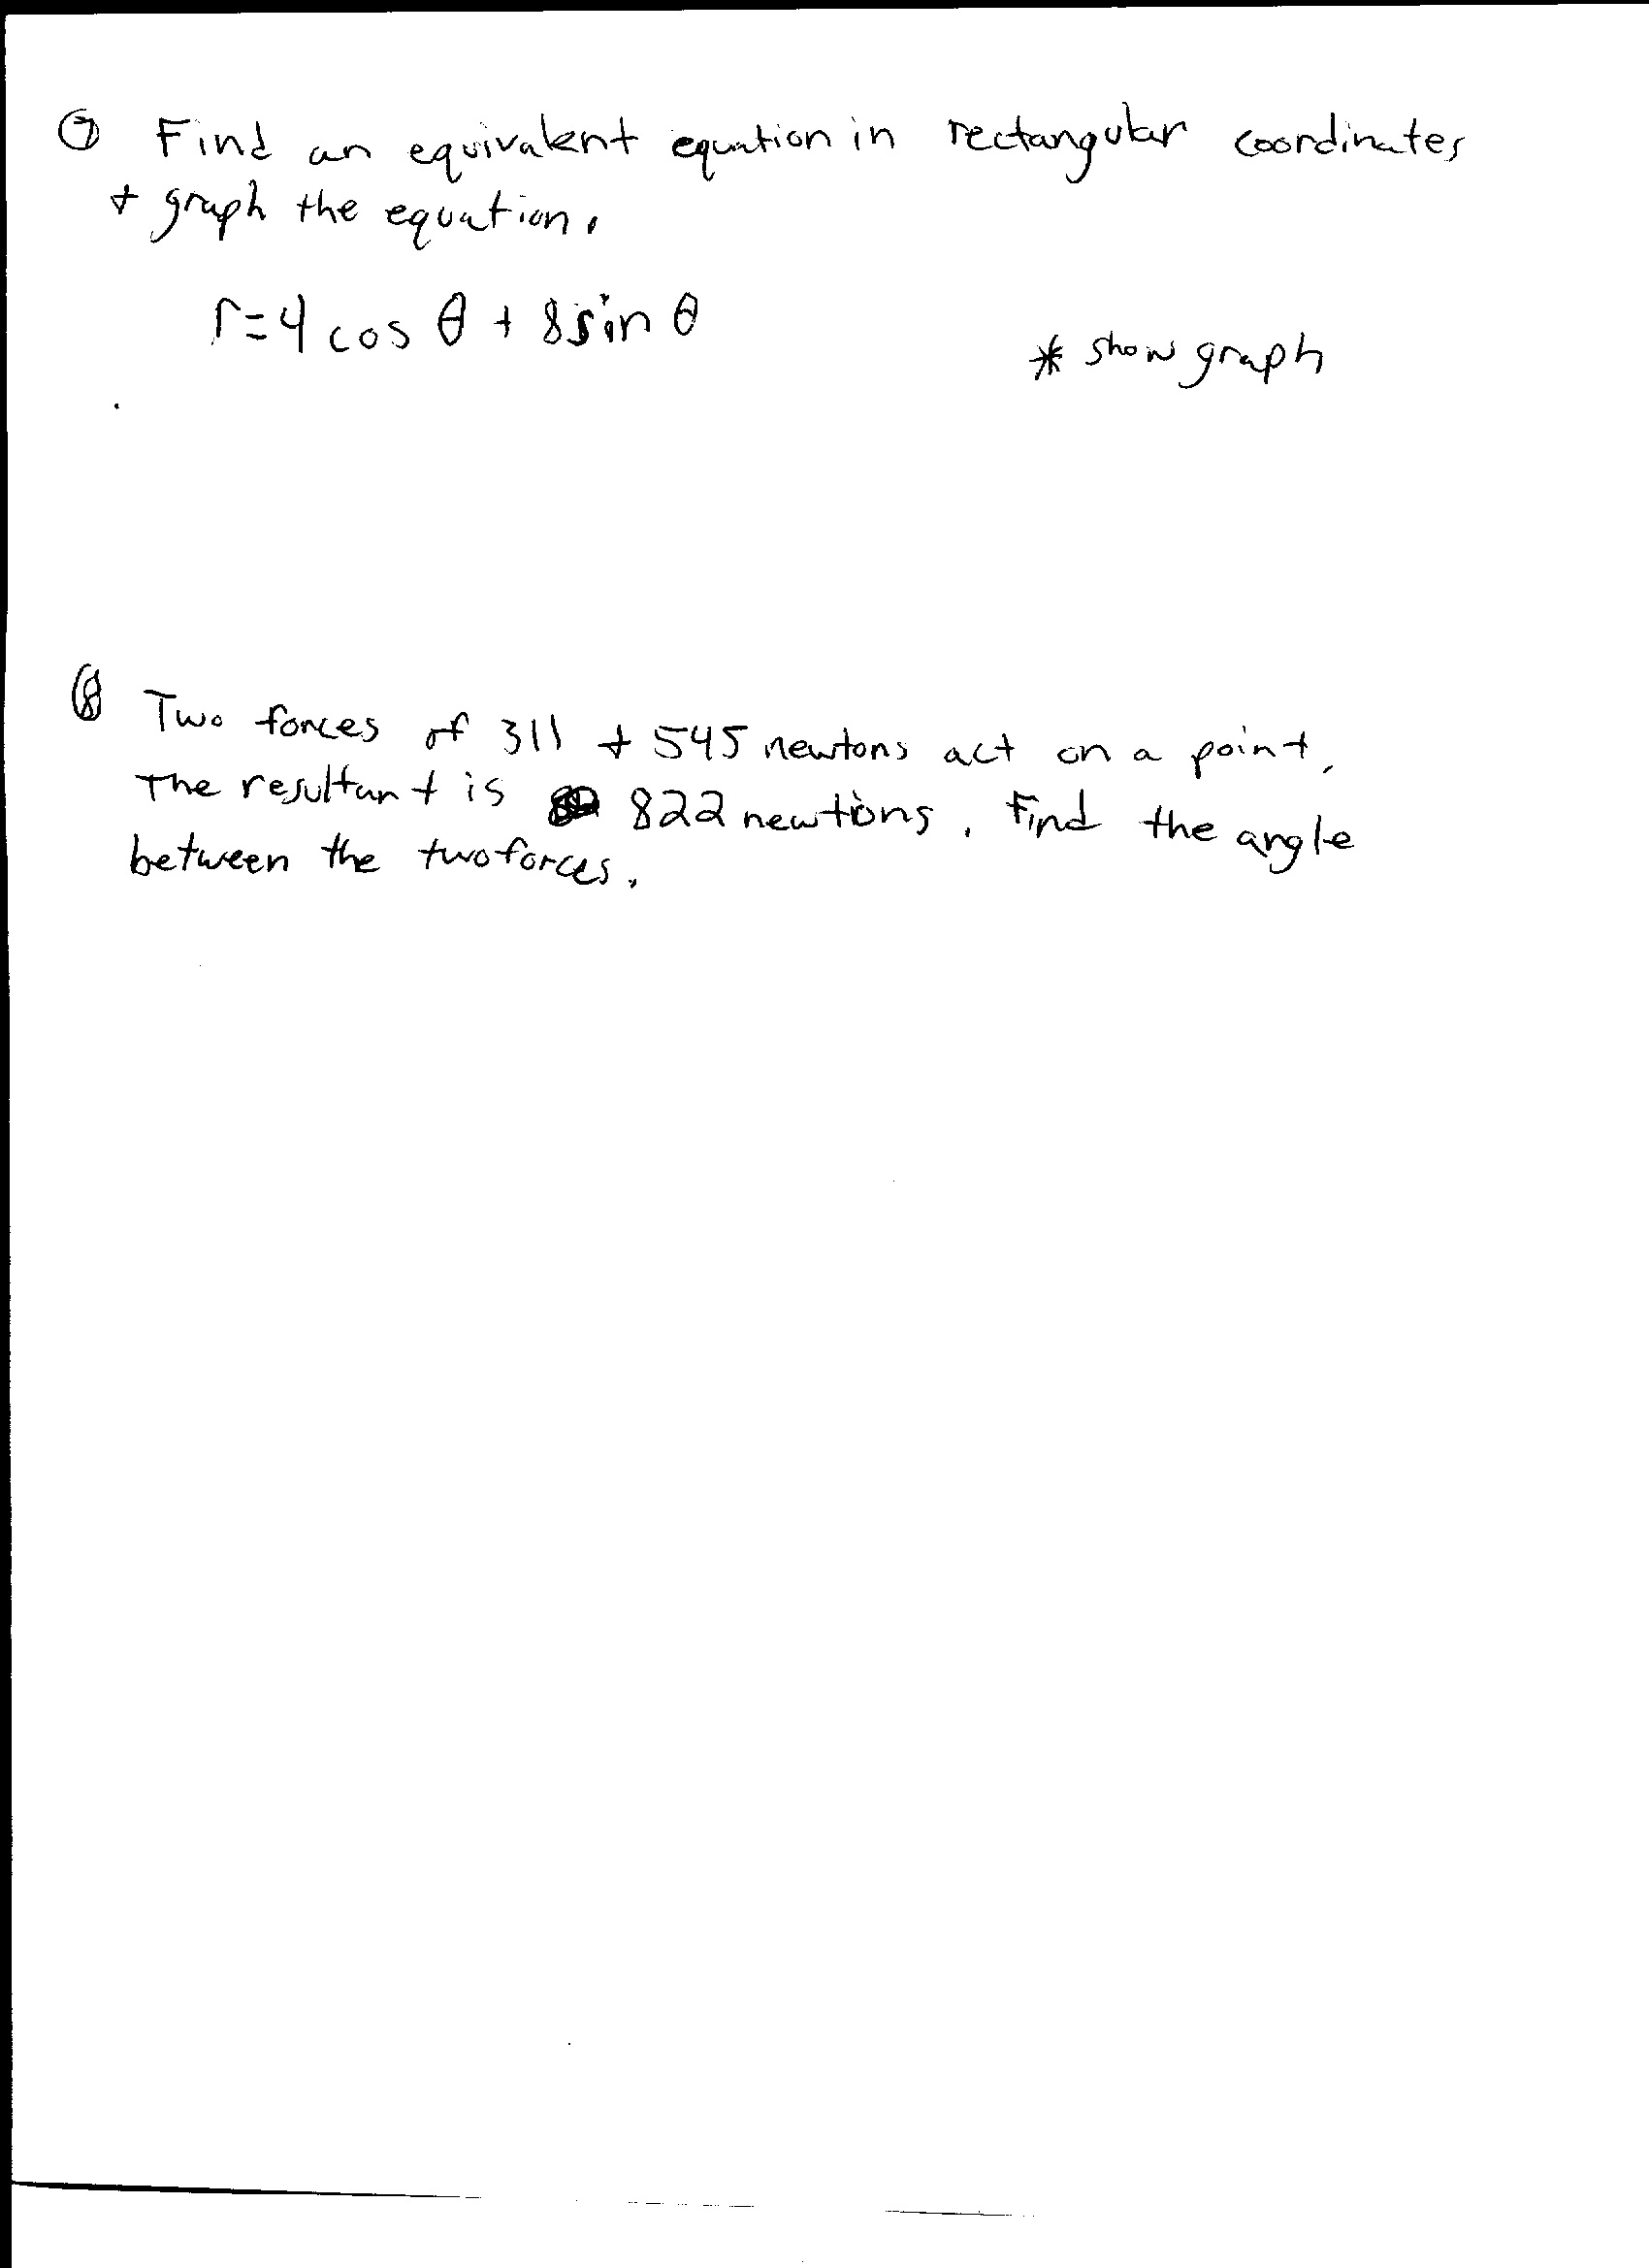 ⑦ Find an equivalent equation in rectangular coordinates
+ graph the equation.
r=4 cos θ + 8 sin θ
* show graph
⑧ Two forces of 311 + 545 newtons act on a point.
The resultant is 822 newtons. Find the angle
between the two forces.